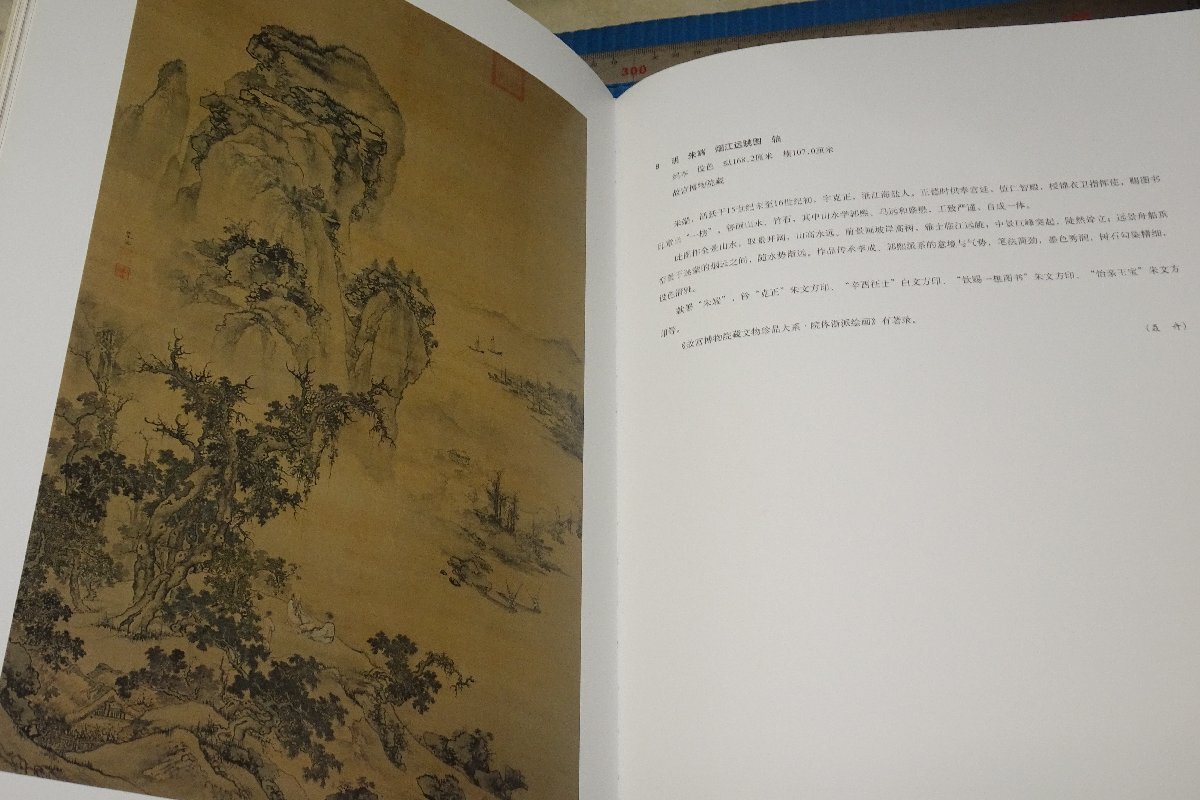 300
8 明 朱端 烟江远眺图 轴
绢本 设色 纵168.2厘米 横107.0厘米
故宫博物院藏
朱端，活跃于15世纪末至16世纪初，字克正，浙江海盐人。正德时供奉宫廷，值仁智殿，授锦衣卫指挥使，赐图书
曰钦赐“一樵”。善画山水、竹石，其中山水学郭熙、马远和盛懋，工致严谨，自成一体。
此图作全景山水，取景开阔，山高水远。前景画坡岸高树，雅士临江远眺；中景巨峰突起，陡然耸立；远景舟船票
泊于迷蒙的烟云之间，随水势渐远。作品传承李成、郭熙派系的意境与气势，笔法简劲，墨色秀润，树石勾染精细，
设色清雅。
款署“朱端”，钤“克正”朱文方印、“辛酉征士”白文方印、“钦赐一樵图书”朱文方印、“怡亲王宝”朱文方
印等。
《故宫博物院藏文物珍品大系·院体浙派绘画》有著录。
（聂 卉）